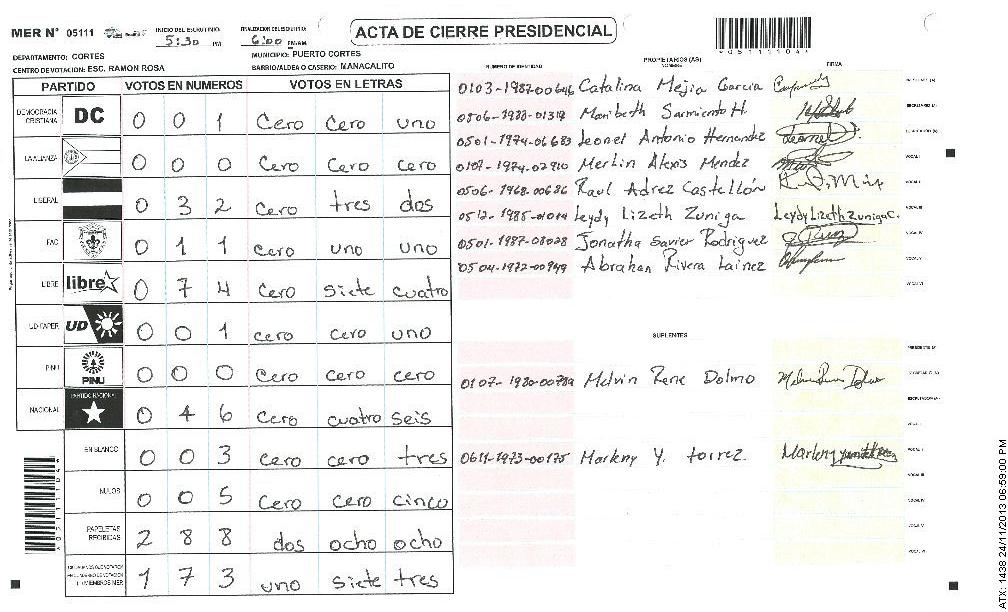 MER Nº 05111
INICIO DEL ESCRUTINIO:
5:30 PM
FINALIZACION DEL ESCRUTINIO:
6:00 PM/AM
ACTA DE CIERRE PRESIDENCIAL
DEPARTAMENTO: CORTES
MUNICIPIO: PUERTO CORTES
CENTRO DE VOTACION: ESC. RAMON ROSA
BARRIO/ALDEA O CASERIO: MANACALITO
PARTIDO VOTOS EN NUMEROS VOTOS EN LETRAS
DEMOCRACIA CRISTIANA DC 0 0 1 Cero Cero uno
LA ALIANZA 0 0 0 Cero Cero Cero
LIBERAL 0 3 2 Cero tres dos
PAC 0 1 1 Cero uno uno
LIBRE libre 0 7 4 Cero siete cuatro
UD-FAPER UD 0 0 1 cero cero uno
PINU PINU 0 0 0 Cero cero cero
NACIONAL PARTIDO NACIONAL 0 4 6 Cero cuatro seis
EN BLANCO 0 0 3 Cero cero tres
NULOS 0 0 5 Cero cero cinco
PAPELETAS RECIBIDAS 2 8 8 dos ocho ocho
1 7 3 uno siete tres
NUMERO DE IDENTIDAD
PROPIETARIOS (AS)
NOMBRE
FIRMA
0103-1987-00646 Catalina Mejia Garcia
0506-1988-01319 Maribeth Sarmiento H.
0501-1974-06683 Leonel Antonio Hernandez Leonel
0107-1974-02910 Merlin Alexis Mendez
0506-1968-00686 Raul Adrez Castellón
0512-1985-01014 Leydy Lizeth Zuniga Leydy Lizeth Zuniga C.
0501-1987-08028 Jonatha Savier Rodriguez
0504-1972-00949 Abrahan Rivera Lainez
SUPLENTES
0107-1980-00789 Melvin Rene Dolmo
0611-1973-00175 Markny Y. torrez
ATX: 1438 24/11/2013 06:59:00 PM